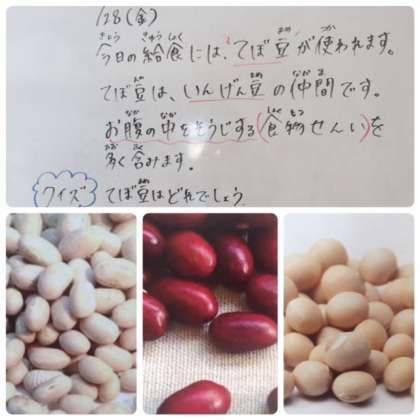 1/28(金)
今日の給食には、てぼ豆が使われます。
てぼ豆は、いんげん豆の仲間です。
お腹の中をそうじする(食物せんい)を
多く含みます。
クイズ てぼ豆はどれでしょう